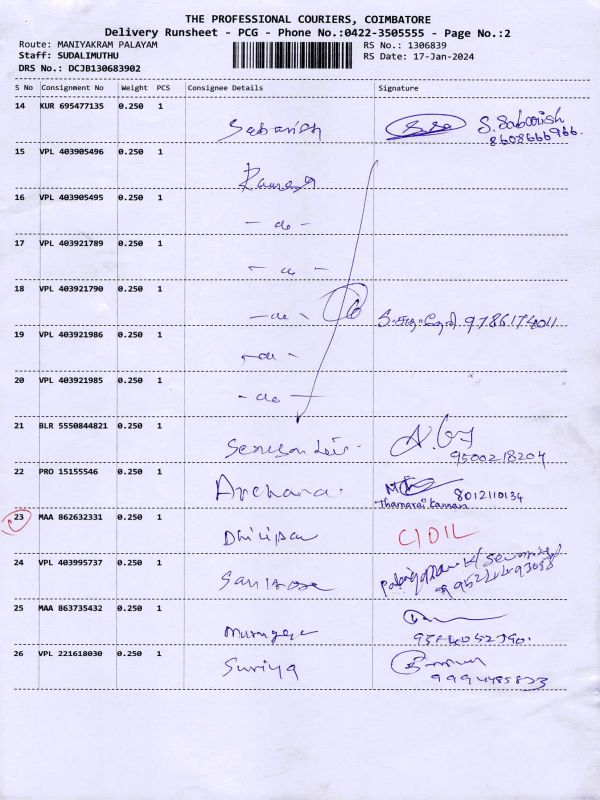 THE PROFESSIONAL COURIERS, COIMBATORE
Delivery Runsheet - PCG - Phone No.:0422-3505555 - Page No.:2
Route: MANIYAKRAM PALAYAM RS No.: 1306839
Staff: SUDALIMUTHU RS Date: 17-Jan-2024
DRS No.: DCJB130683902
S No Consignment No Weight PCS Consignee Details Signature
14 KUR 695477135 0.250 1 Sabarish S. Sabarish
8608666966.
15 VPL 403905496 0.250 1 Ramesh
16 VPL 403905495 0.250 1 - do -
17 VPL 403921789 0.250 1 - do -
18 VPL 403921790 0.250 1 - do - 9786174011
19 VPL 403921986 0.250 1 - do -
20 VPL 403921985 0.250 1 - do -
21 BLR 5550844821 0.250 1
9500218204
22 PRO 15155546 0.250 1 Archana.
Thamarai Kannan 8012110134
23 MAA 862632331 0.250 1 Dhilipan
24 VPL 403995737 0.250 1
25 MAA 863735432 0.250 1 Murugesh
26 VPL 221618030 0.250 1 Suriya